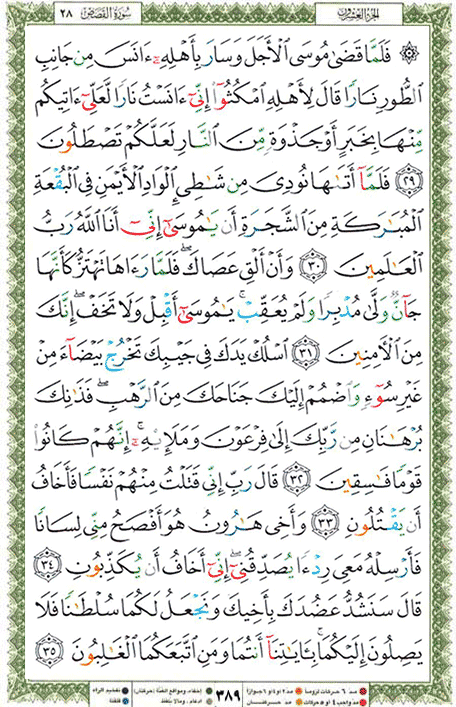 سورة القصص ٢٨
الجزء العشرون
۞ فَلَمَّا قَضَىٰ مُوسَى ٱلْأَجَلَ وَسَارَ بِأَهْلِهِۦٓ ءَانَسَ مِن جَانِبِ
ٱلطُّورِ نَارًا قَالَ لِأَهْلِهِ ٱمْكُثُوٓا۟ إِنِّىٓ ءَانَسْتُ نَارًا لَّعَلِّىٓ ءَاتِيكُم
مِّنْهَا بِخَبَرٍ أَوْ جَذْوَةٍ مِّنَ ٱلنَّارِ لَعَلَّكُمْ تَصْطَلُونَ
﴿٢٩﴾ فَلَمَّآ أَتَىٰهَا نُودِىَ مِن شَٰطِئِ ٱلْوَادِ ٱلْأَيْمَنِ فِى ٱلْبُقْعَةِ
ٱلْمُبَٰرَكَةِ مِنَ ٱلشَّجَرَةِ أَن يَٰمُوسَىٰٓ إِنِّىٓ أَنَا ٱللَّهُ رَبُّ
ٱلْعَٰلَمِينَ ﴿٣٠﴾ وَأَنْ أَلْقِ عَصَاكَ ۖ فَلَمَّا رَءَاهَا تَهْتَزُّ كَأَنَّهَا
جَآنٌّ وَلَّىٰ مُدْبِرًا وَلَمْ يُعَقِّبْ ۚ يَٰمُوسَىٰٓ أَقْبِلْ وَلَا تَخَفْ ۖ إِنَّكَ
مِنَ ٱلْءَامِنِينَ ﴿٣١﴾ ٱسْلُكْ يَدَكَ فِى جَيْبِكَ تَخْرُجْ بَيْضَآءَ مِنْ
غَيْرِ سُوٓءٍ وَٱضْمُمْ إِلَيْكَ جَنَاحَكَ مِنَ ٱلرَّهْبِ ۖ فَذَٰنِكَ
بُرْهَٰنَانِ مِن رَّبِّكَ إِلَىٰ فِرْعَوْنَ وَمَلَإِي۟هِۦٓ ۚ إِنَّهُمْ كَانُوا۟
قَوْمًا فَٰسِقِينَ ﴿٣٢﴾ قَالَ رَبِّ إِنِّى قَتَلْتُ مِنْهُمْ نَفْسًا فَأَخَافُ
أَن يَقْتُلُونِ ﴿٣٣﴾ وَأَخِى هَٰرُونُ هُوَ أَفْصَحُ مِنِّى لِسَانًا
فَأَرْسِلْهُ مَعِىَ رِدْءًا يُصَدِّقُنِىٓ ۖ إِنِّىٓ أَخَافُ أَن يُكَذِّبُونِ ﴿٣٤﴾
قَالَ سَنَشُدُّ عَضُدَكَ بِأَخِيكَ وَنَجْعَلُ لَكُمَا سُلْطَٰنًا فَلَا
يَصِلُونَ إِلَيْكُمَا ۚ بِـَٔايَٰتِنَآ أَنتُمَا وَمَنِ ٱتَّبَعَكُمَا ٱلْغَٰلِبُونَ ﴿٣٥﴾
٣٨٩